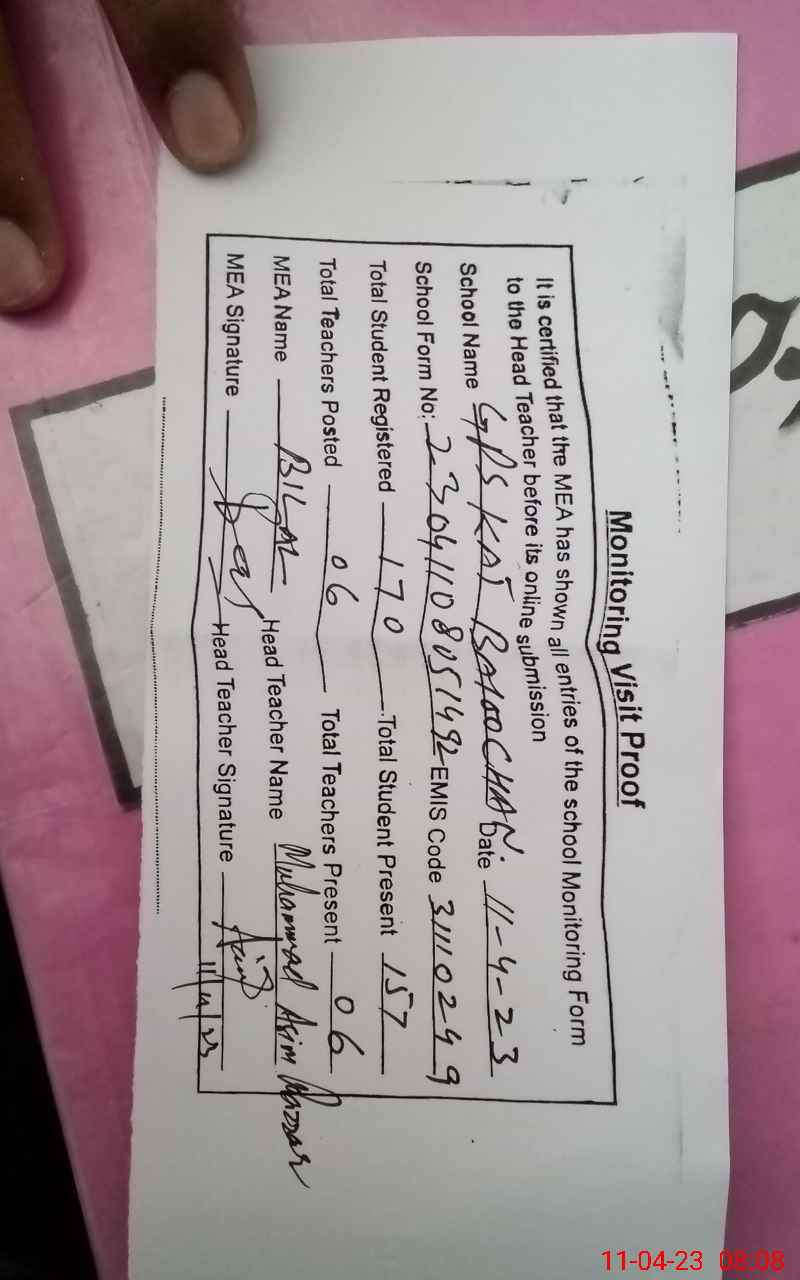 Monitoring Visit Proof
It is certified that the MEA has shown all entries of the school Monitoring Form
to the Head Teacher before its online submission
School Name GPS KAT BALOOCHAN. Date 11-4-23
School Form No: 23041108051492 EMIS Code 31110249
Total Student Registered 170 Total Student Present 157
Total Teachers Posted 06 Total Teachers Present 06
MEA Name BILAL Head Teacher Name Muhammad Asim
MEA Signature Head Teacher Signature Asim
11/4/23
11-04-23 08:08